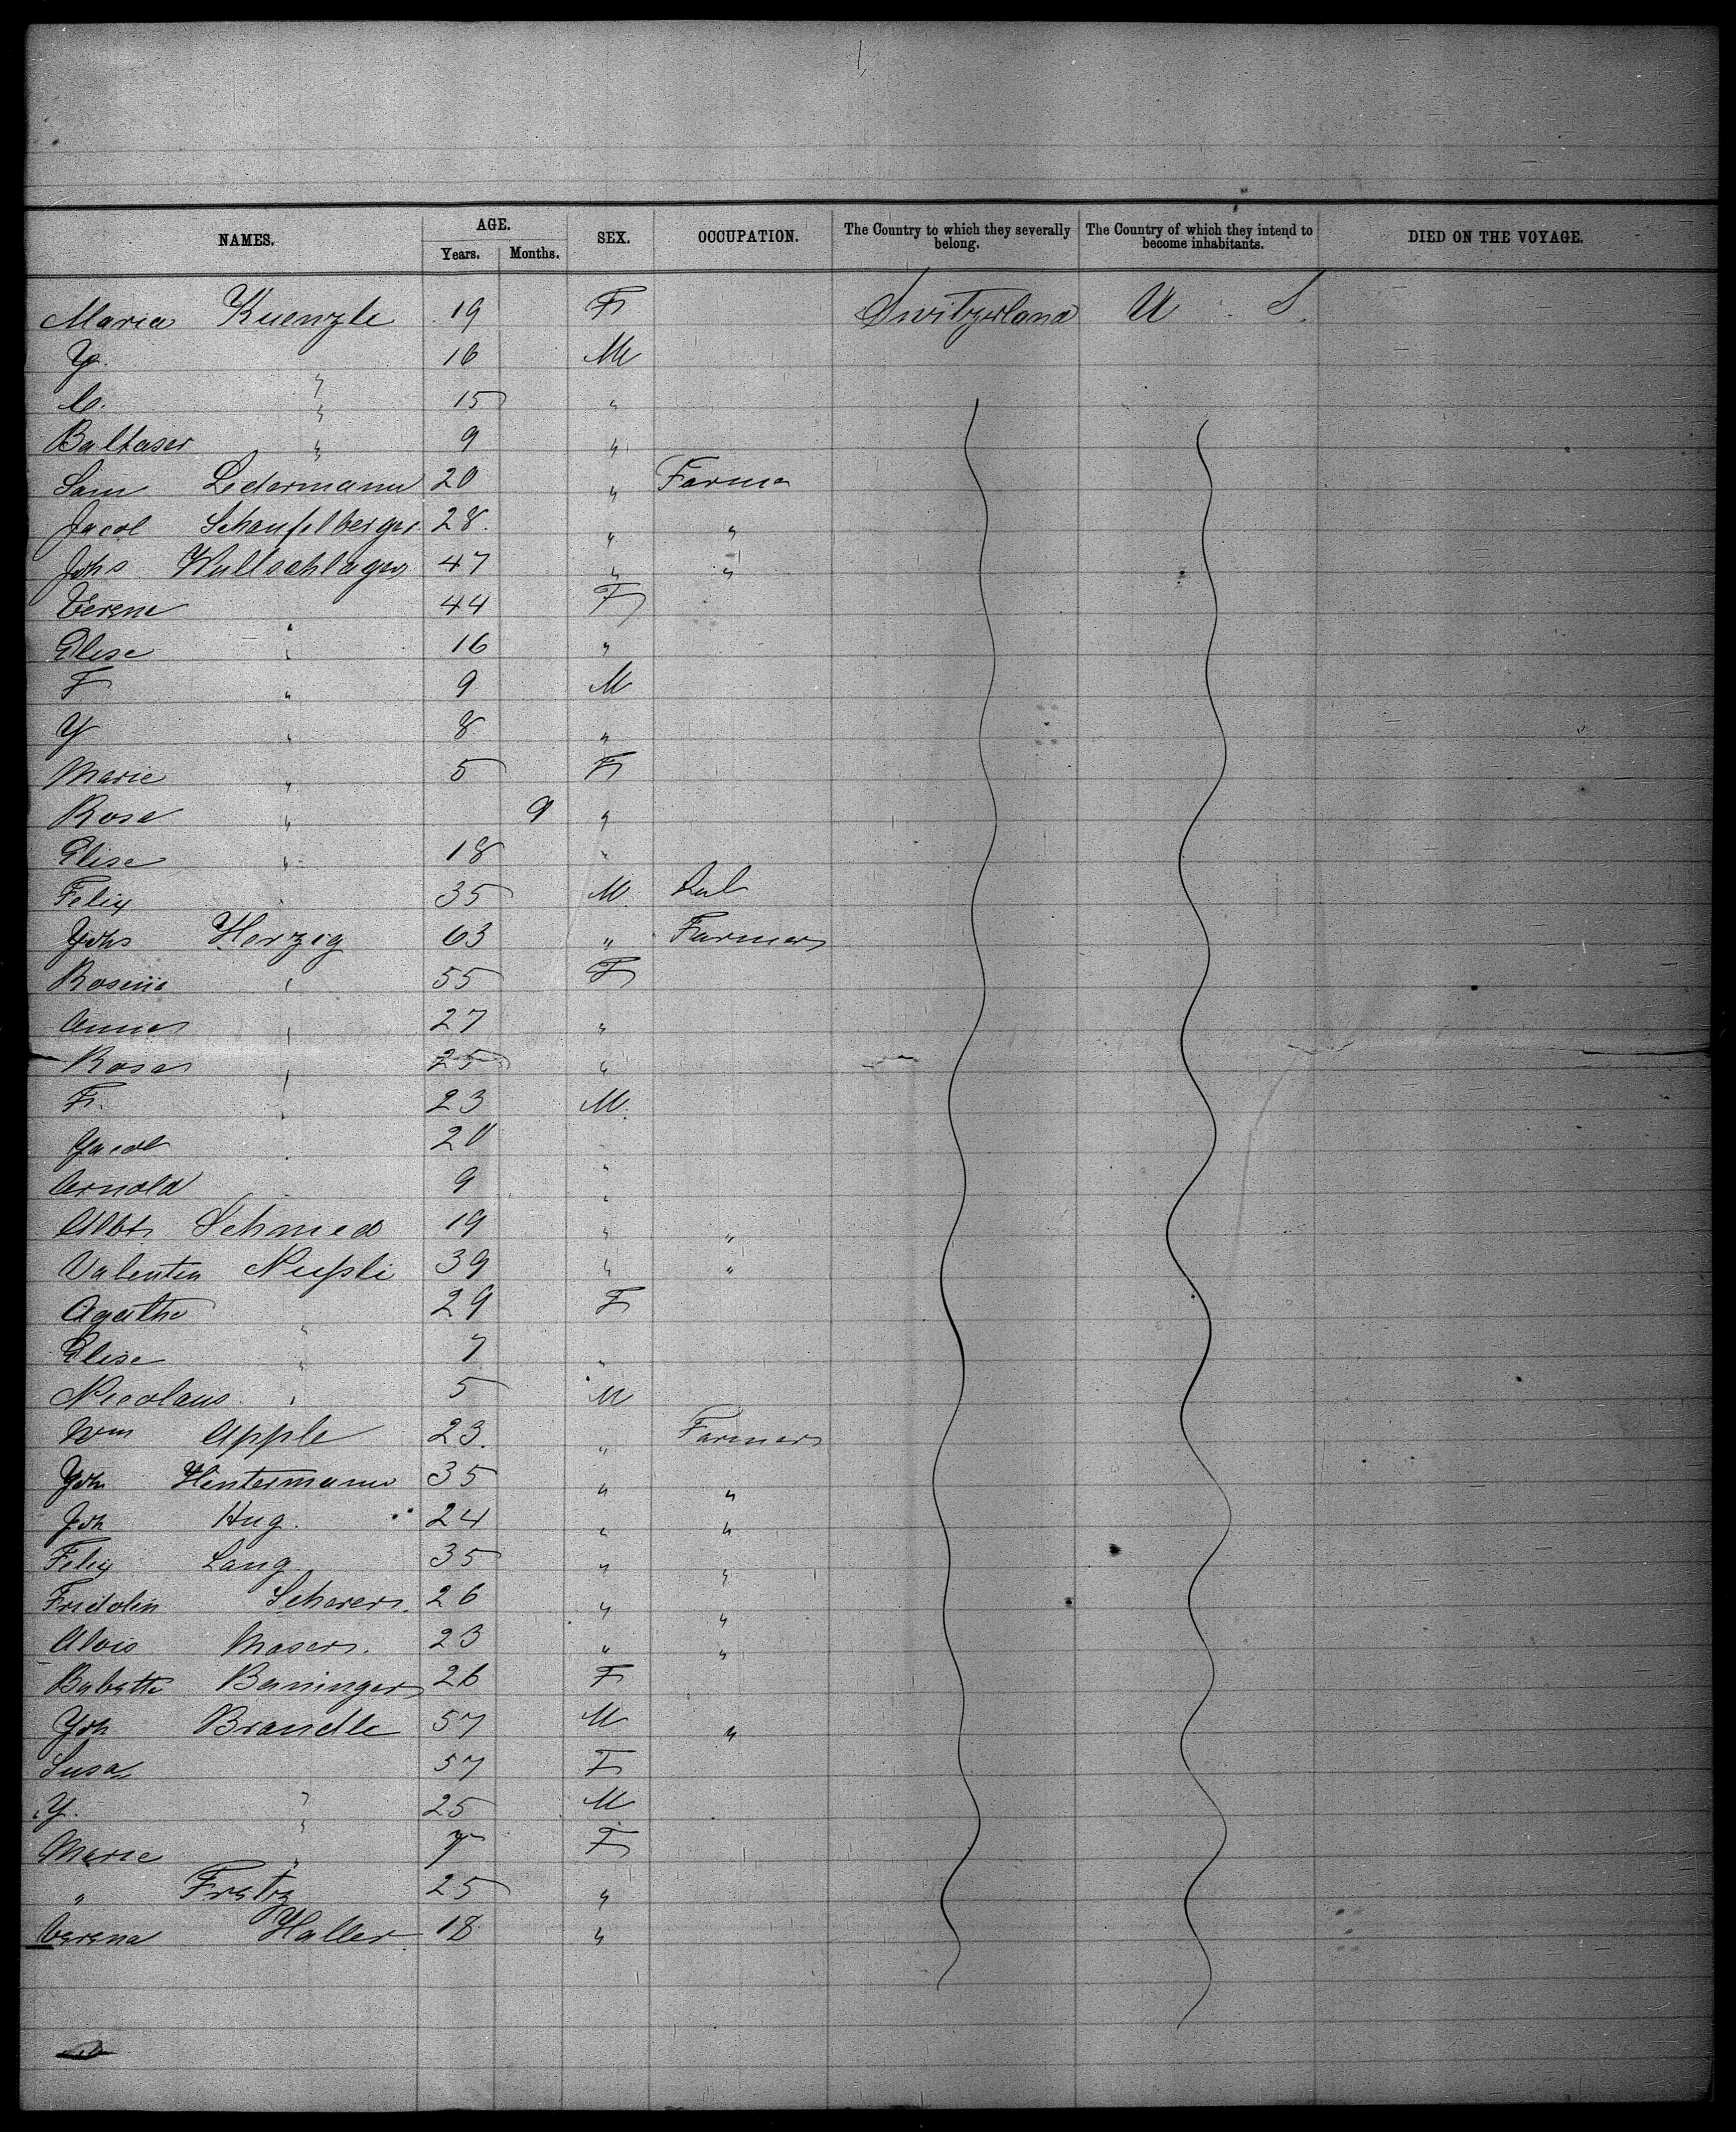 NAMES. AGE. SEX. OCCUPATION. The Country to which they severally belong. The Country of which they intend to become inhabitants. DIED ON THE VOYAGE.
Years. Months.
Maria Kuenzle 19 F Switzerland U S.
Y. " 16 M
C. " 15 "
Baltaser " 9 "
Sam Ledermann 20 " Farmer
Jacob Schaufelberger 28. " "
Johs Wullschlager 47 " "
Verena 44 F
Elise " 16 "
F " 9 M
Y " 8 "
Marie " 5 F
Rosa " 9 "
Elise " 18 "
Felix " 35 M. Lab
Johs Herzig 63 " Farmer
Rosina " 55 F
Anna " 27 "
Rosa " 25 "
Fr. " 23 M.
Jacob " 20 "
Arnold 9 "
Albt Schmied 19 " "
Valentin Nussli 39 " "
Agathe 29 F
Elise " 7 "
Nicolaus " 5 M
Wm Apple 23. " Farmer
Joh Hintermann 35 " "
Joh Hug. 24 " "
Felix Lang 35 " "
Fridolin Scherer. 26 " "
Alois Moser. 23 " "
Babette Beninger 26 F
Joh Brandle 57 M "
Susa 57 F
Y. " 25 M
Marie " 7 F
" 25 "
Verena Haller 18 "